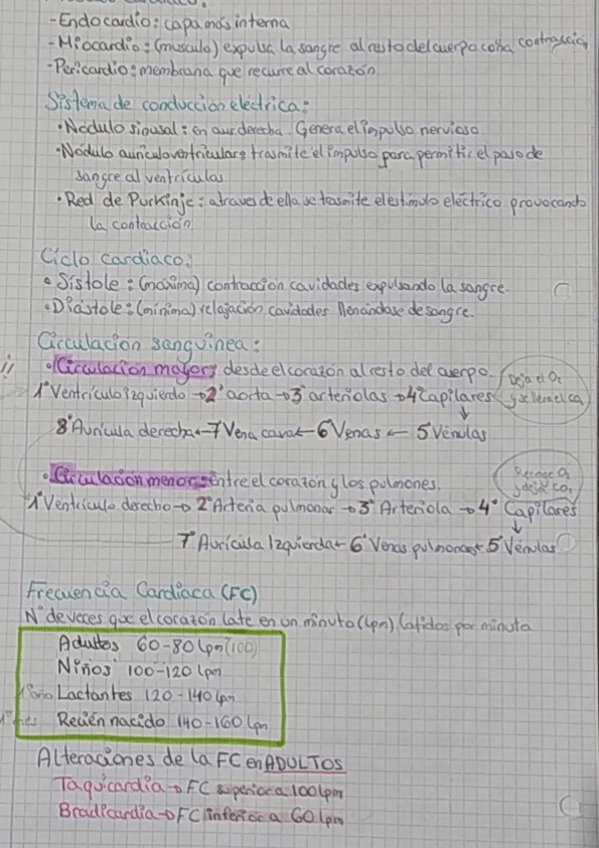 -Endocardio: capa más interna
-Miocardio: (musculo) expulsa la sangre al resto del cuerpo con la contracción
-Pericardio: membrana que recurre al corazón
Sistema de conducción eléctrica:
• Nódulo sinusal: en aur. derecha. Genera el impulso nervioso
• Nódulo auriculoventricular: trasmite el impulso para permitir el paso de
sangre al ventrículas
• Red de Purkinje: atraves de ella se trasmite el estímulo eléctrico provocando
la contracción
Ciclo cardiaco:
• Sístole: (máxima) contraccion cavidades expulsando la sangre.
• Diástole: (mínima) relajación cavidades llenándose de sangre.
Circulación sanguínea:
¡¡ • Circulación mayor: desde el corazón al resto del cuerpo.
Deja el O₂
y se lleva el CO₂
1º Ventrículo izquierdo → 2º aorta → 3º arteriolas → 4º Capilares
↓
8º Aurícula derecha ← 7 Vena cava ← 6 Venas ← 5 Vénulas
• Circulación menor: entre el corazón y los pulmones.
Recoge O₂
y deja CO₂
1º Ventrículo derecho → 2º Arteria pulmonar → 3º Arteriola → 4º Capilares
↓
7º Aurícula Izquierda ← 6º Venas pulmonares ← 5º Vénulas
Frecuencia Cardíaca (FC)
Nº de veces que el corazón late en un minuto (lpm) latidos por minuto
Adultos 60-80 lpm (100)
Niños 100-120 lpm
1º año Lactantes 120-140 lpm
1º mes Recién nacido 140-160 lpm
Alteraciones de la FC en ADULTOS
Taquicardia → FC superior a 100 lpm
Bradicardia → FC inferior a 60 lpm